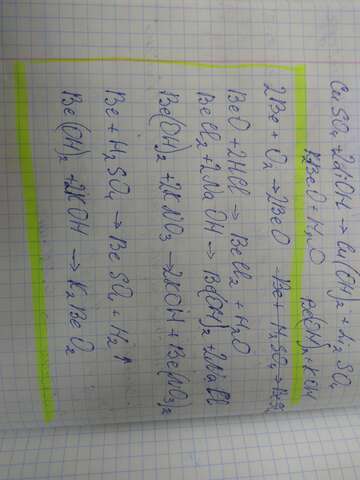 CuSO₄ + 2LiOH → Cu(OH)₂ + Li₂SO₄
K₂BeO₂ + H₂O Be(OH)₂ + KOH
2Be + O₂ → 2BeO - Be + H₂SO₄ →
BeO + 2HCl → BeCl₂ + H₂O
BeCl₂ + 2NaOH → Be(OH)₂ + 2NaCl
Be(OH)₂ + 2KNO₃ → 2KOH + Be(NO₃)₂
Be + H₂SO₄ → BeSO₄ + H₂↑
Be(OH)₂ + 2KOH → K₂BeO₂